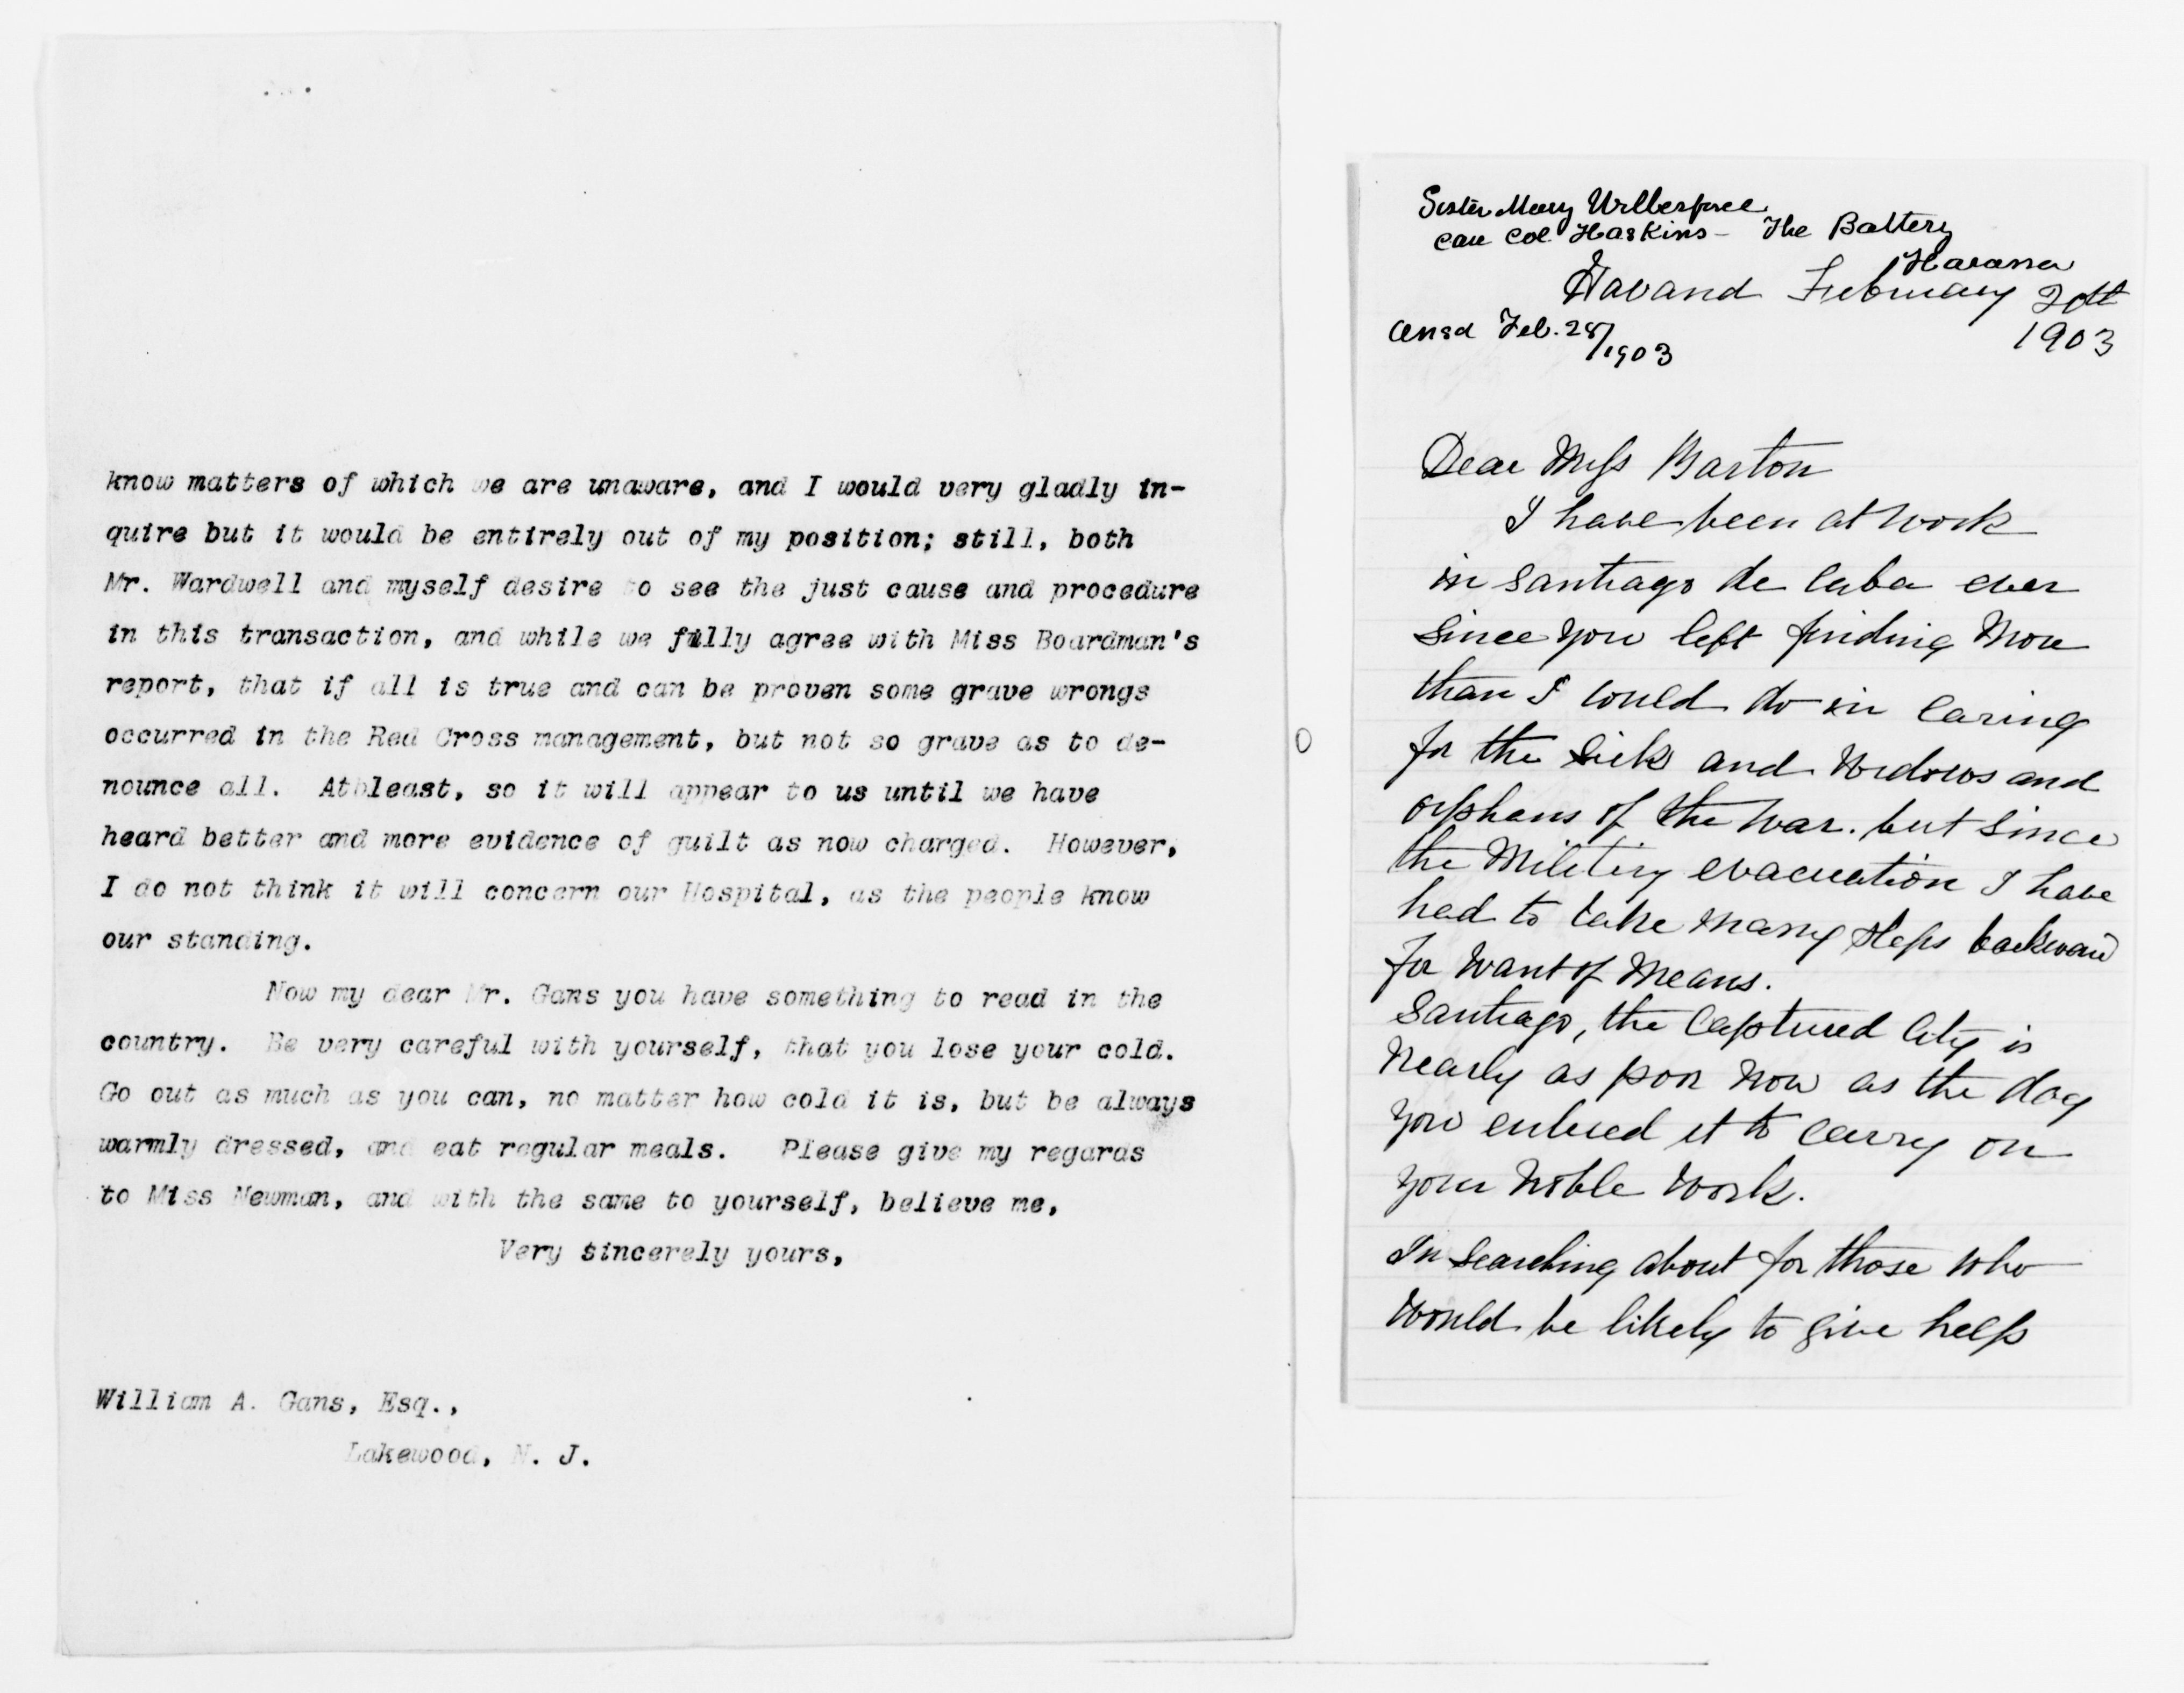 know matters of which we are unaware, and I would very gladly in-
quire but it would be entirely out of my position; still, both
Mr. Wardwell and myself desire to see the just cause and procedure
in this transaction, and while we fully agree with Miss Boardman's
report, that if all is true and can be proven some grave wrongs
occurred in the Red Cross management, but not so grave as to de-
nounce all. Atbleast, so it will appear to us until we have
heard better and more evidence of guilt as now charged. However,
I do not think it will concern our Hospital, as the people know
our standing.
Now my dear Mr. Gans you have something to read in the
country. Be very careful with yourself, that you lose your cold.
Go out as much as you can, no matter how cold it is, but be always
warmly dressed, and eat regular meals. Please give my regards
to Miss Newman, and with the same to yourself, believe me,
Very sincerely yours,
William A. Gans, Esq.,
Lakewood, N. J.
Sister Mary Wilberforce
Care Col Haskins - The Battery
Havana
Havana February
1903
Ansd Feb. 28/1903
Dear Miss Barton
I have been at work
in Santiago de Cuba ever
since you left finding more
than I could do in caring
for the sick and widows and
orphans of the war. but since
the Military evacuation I have
had to take many steps backward
for want of means.
Santiago, the Captured City is
nearly as poor now as the day
you entered it to carry on
your noble work.
In searching about for those who
would be likely to give help